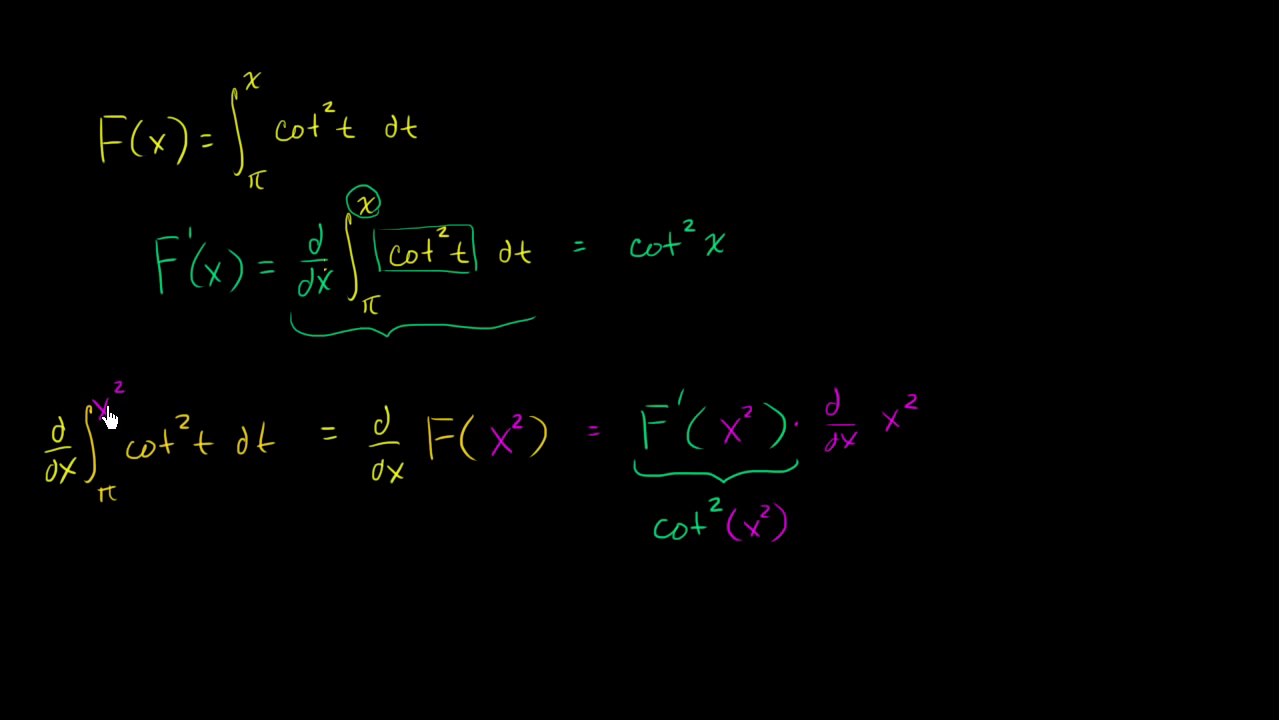 F(x) = ∫_π^x cot² t dt
F'(x) = d/dx ∫_π^x cot² t dt = cot² x
d/dx ∫_π^{x²} cot² t dt = d/dx F(x²) = F'(x²) · d/dx x²
cot² (x²)